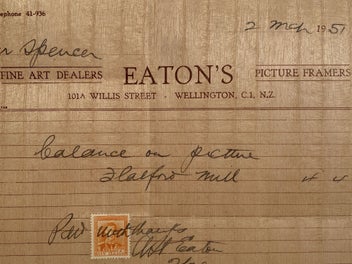 ephone 41-936
2 Mch 1951
Mr Spencer
FINE ART DEALERS EATON'S PICTURE FRAMERS
101A WILLIS STREET - WELLINGTON, C.1, N.Z.
balance on picture
Flatford Mill 4 4
Paid with thanks
Eaton